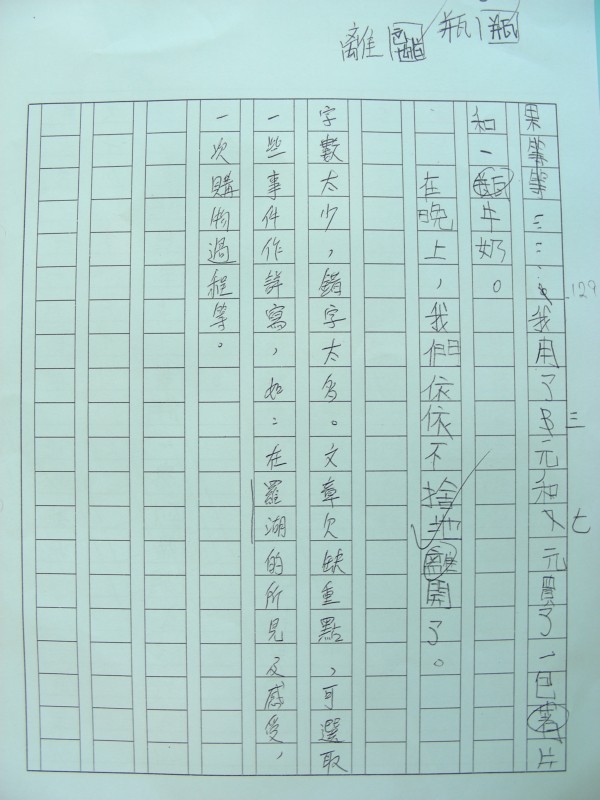 離 瓶
果等等……我用了三元和七元買了一包薯片
和一瓶牛奶。
在晚上，我們依依不捨地離開了。
字數太少，錯字太多。文章欠缺重點，可選取
一些事件作詳寫，如：在羅湖的所見及感受，
一次購物過程等。